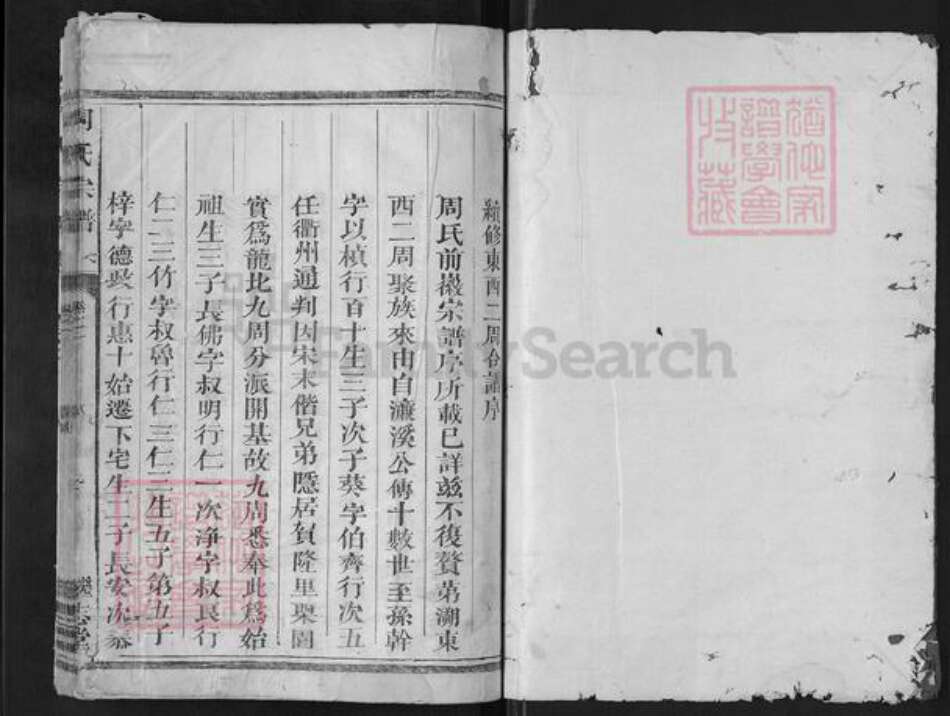 猶他家
譜學會
收藏
續修東西二周合譜序
周氏前撥宗譜序所載已詳茲不復贅第溯東
西二周聚族來由自濂溪公傳十數世至孫幹
字以楨行百十生三子次子葵字伯齊行次五
任衢州通判因宋末偕兄弟隱居賀隆里梨園
實爲龍北九周分派開基故九周悉奉此爲始
祖生三子長佛字叔明行仁一次淨字叔良行
仁二三竹字叔魯行仁三仁二生五子第五子
梓字德 行惠十始遷下宅生二子長安次泰
周氏宗譜
FamilySearch